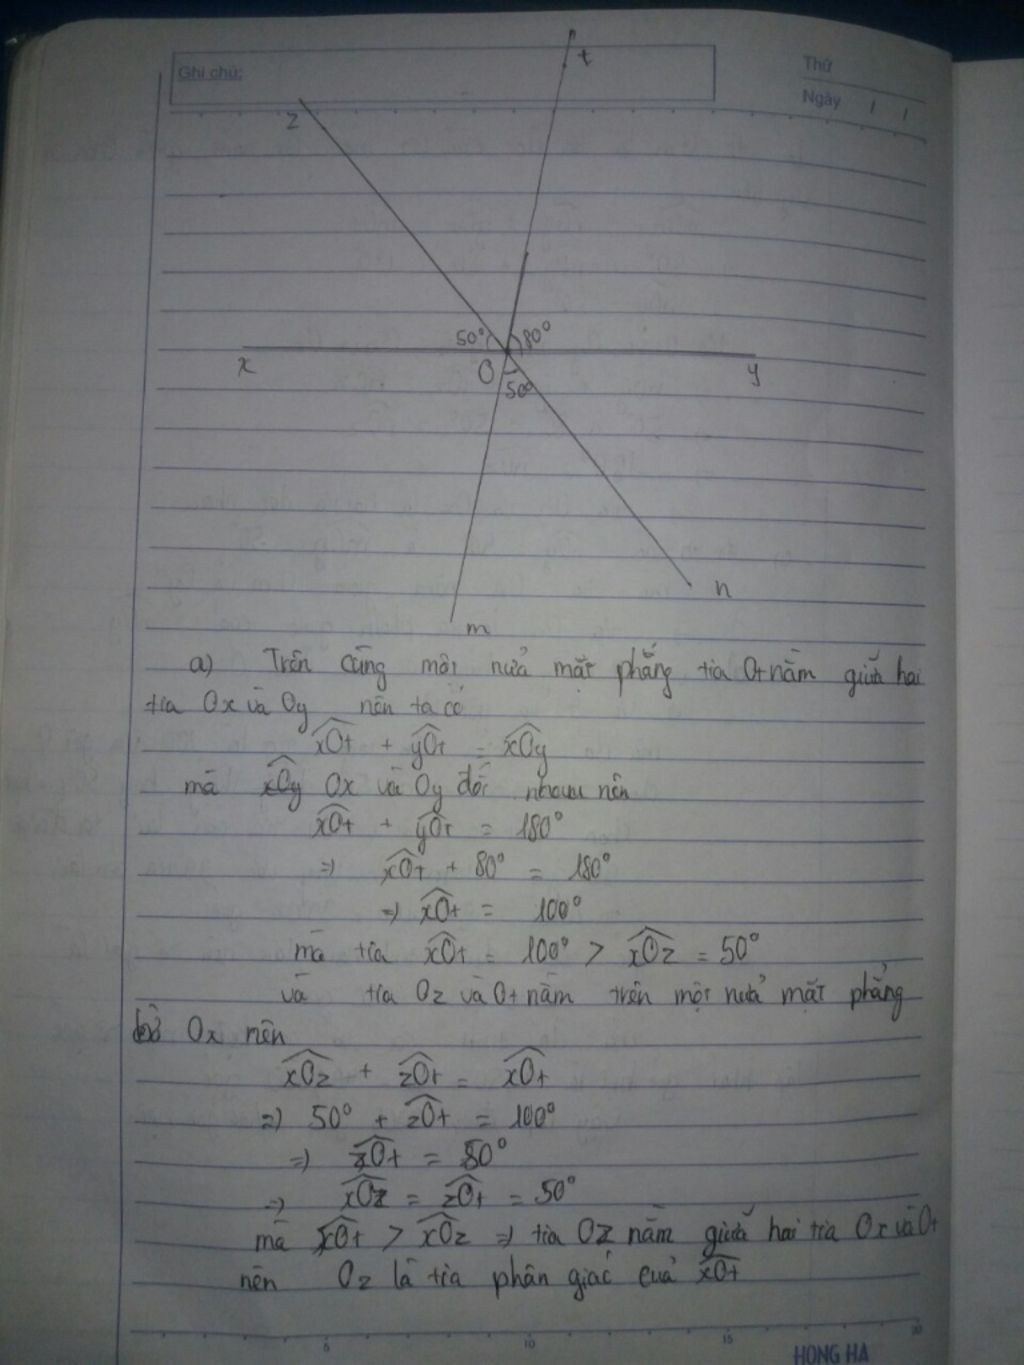 Ghi chú:
Thứ
Ngày / /
t
z
50° 80°
x O y
50°
n
m
a) Trên cùng một nửa mặt phẳng tia Ot nằm giữa hai
tia Ox và Oy nên ta có
xOt + yOt = xOy
mà xOy Ox và Oy đối nhau nên
xOt + yOt = 180°
=> xOt + 80° = 180°
=> xOt = 100°
mà tia xOt = 100° > xOz = 50°
và tia Oz và Ot nằm trên một nửa mặt phẳng
bờ Ox nên
xOz + zOt = xOt
=> 50° + zOt = 100°
=> zOt = 50°
=> xOz = zOt = 50°
mà xOt > xOz => tia Oz nằm giữa hai tia Ox và Ot
nên Oz là tia phân giác của xOt
5 10 15 20
HONG HA